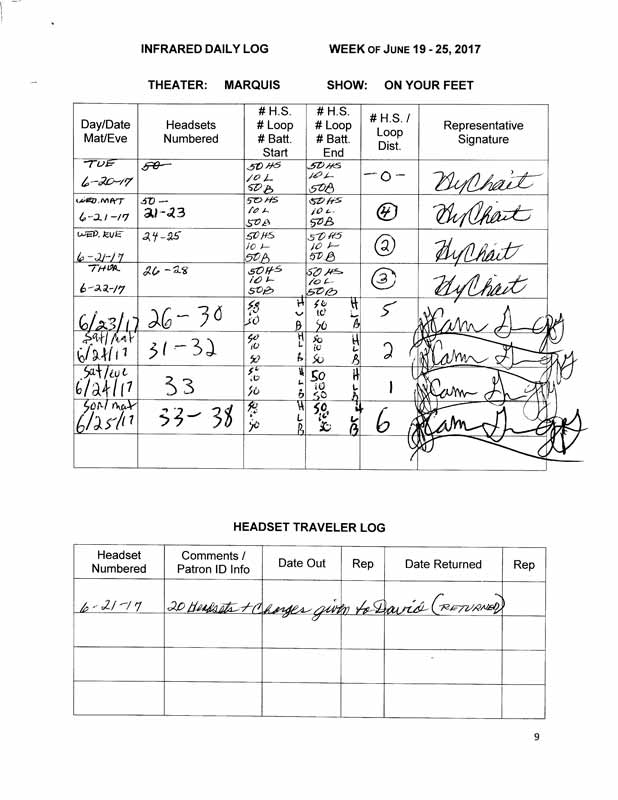 INFRARED DAILY LOG WEEK OF JUNE 19 - 25, 2017
THEATER: MARQUIS SHOW: ON YOUR FEET
Day/Date Mat/Eve Headsets Numbered # H.S. # Loop # Batt. Start # H.S. # Loop # Batt. End # H.S. / Loop Dist. Representative Signature
TUE 6-20-17 50- 50 HS 10 L 50 B 50 HS 10 L 50B -0- HyChait
WED. MAT 6-21-17 50- 21-23 50 HS 10 L 50 B 50 HS 10 L. 50 B 4 HyChait
WED. EVE 6-21-17 24-25 50 HS 10 L 50 B 50 HS 10 L 50 B 2 HyChait
THUR 6-22-17 26-28 50 HS 10 L 50 B 50 HS 10 L 50 B 3 HyChait
6/23/17 26-30 50 H 10 L 50 B 50 H 10 L 50 B 5
Sat/Mat 6/24/17 31-32 50 H 10 L 50 B 50 H 10 L 50 B 2
Sat/eve 6/24/17 33 50 H 10 L 50 B 50 H 10 L 50 B 1
Sun/mat 6/25/17 33-38 50 H 10 L 50 B 50 H 10 L 50 B 6
HEADSET TRAVELER LOG
Headset Numbered Comments / Patron ID Info Date Out Rep Date Returned Rep
6-21-17 20 Headsets + Charges given to David (RETURNED)
9